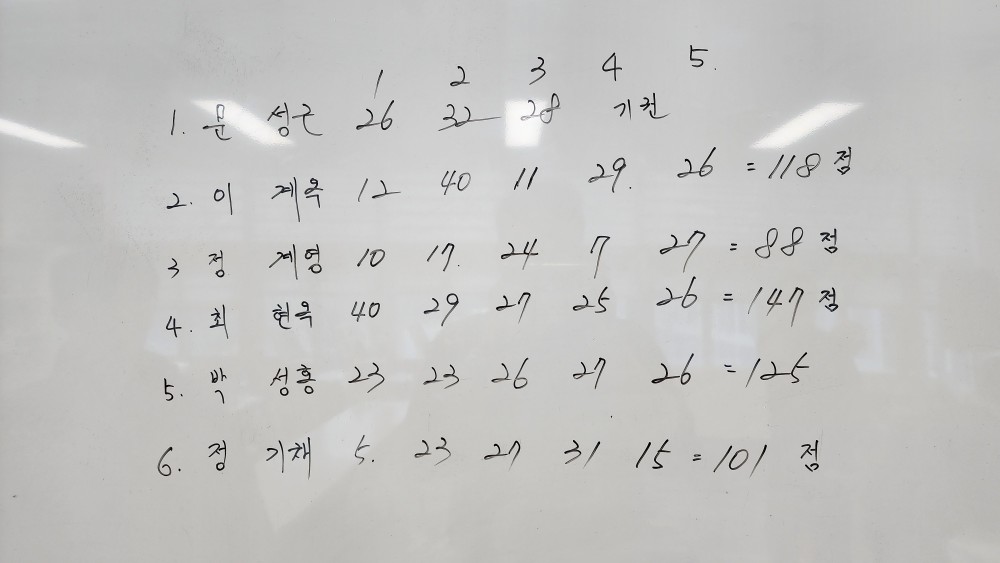 1 2 3 4 5.
1. 문 성근 26 32 28 기권
2. 이 계옥 12 40 11 29. 26 = 118 점
3 정 계영 10 17. 24 7 27 = 88 점
4. 최 현옥 40 29 27 25 26 = 147 점
5. 박 성흥 23 23 26 27 26 = 125
6. 정 기채 5. 23 27 31 15 = 101 점